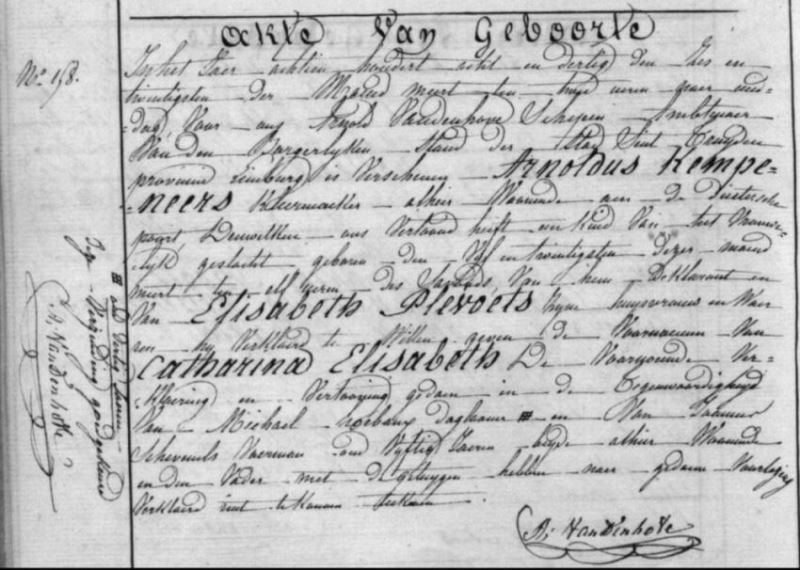 Akte Van Geboorte
No 158.
In het Jaer achtien hondert acht en dertig den zes en
twintigsten der Maend meert ten twee uren naer mid-
dag, Voor ons Arnold Vandenhove Schepen Ambtenaer
Van den Borgerlyken Stand der Stad Sint Truyden
provincie Limburg is Verschenen Arnoldus Kempe-
neers kleermaeker alhier Woonende aen de Diestersche
poort, Denwelken ons Vertoond heeft een kind Van het Vrouwe-
lyk geslacht geboren den Vyf en twintigsten dezer maend
meert te elf uren des Savonds, Van hem Deklarant en
Van Elisabeth Plevoets zyne huysvrouw en Waer
aen hy Verklaerd te Willen geven de Voornaemen Van
Catharina Elisabeth De Voorgonde Ver-
klaering en Vertooning gedaen in de Tegenwoordigheyd
Van Michael daghuurer en Van
Voerman oud Vyftig Jaeren beyde alhier Woonende
en den Vader met de getuygen hebben naer gedaene Voorlezing
Verklaerd niet te konnen teekenen.
A. Vandenhove
oud Jaeren
Deze Verzending goedgekeurd
A. Vandenhove